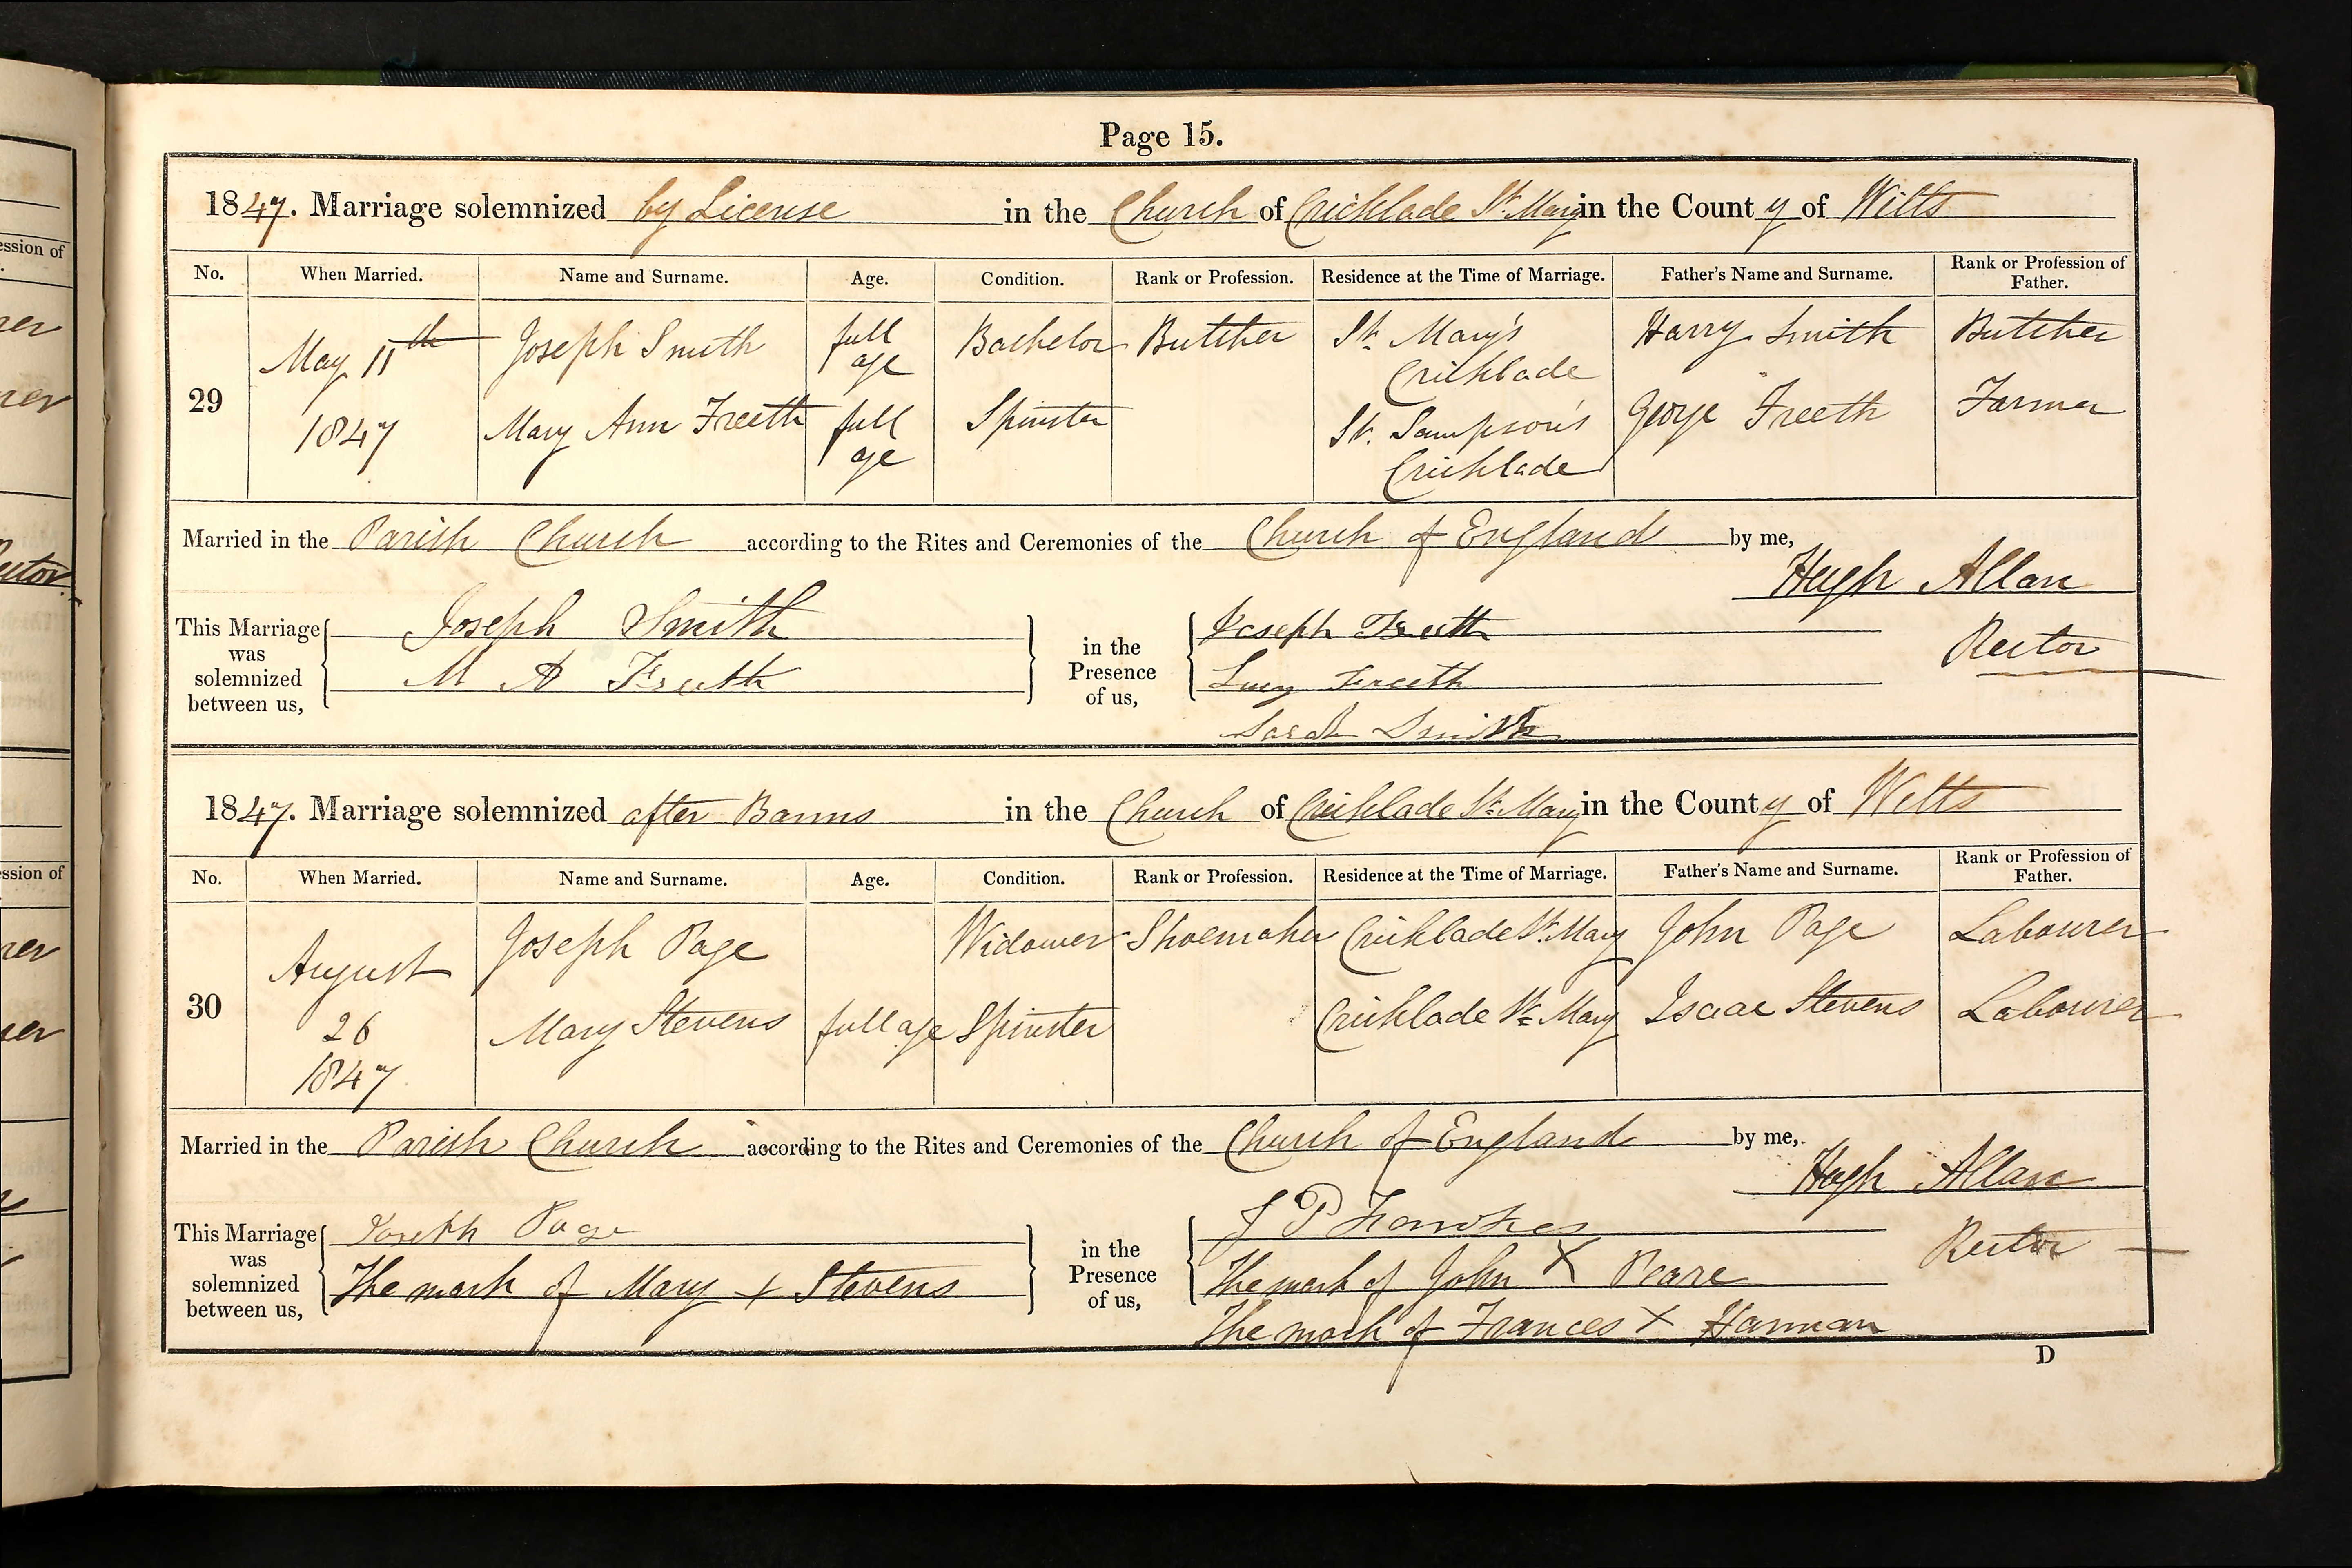 Page 15.
1847. Marriage solemnized by License in the Church of Cricklade St. Mary in the County of Wilts
No. When Married. Name and Surname. Age. Condition. Rank or Profession. Residence at the Time of Marriage. Father's Name and Surname. Rank or Profession of Father.
29 May 11th 1847 Joseph Smith full age Bachelor Butcher St. Mary's Cricklade Harry Smith Butcher
Mary Ann Freeth full age Spinster St. Sampson's Cricklade George Freeth Farmer
Married in the Parish Church according to the Rites and Ceremonies of the Church of England by me,
Hugh Allan
Rector
This Marriage was solemnized between us,
Joseph Smith
M A Freeth
in the Presence of us,
Joseph Freeth
Lucy Freeth
Sarah Smith
1847. Marriage solemnized after Banns in the Church of Cricklade St. Mary in the County of Wilts
No. When Married. Name and Surname. Age. Condition. Rank or Profession. Residence at the Time of Marriage. Father's Name and Surname. Rank or Profession of Father.
30 August 26 1847 Joseph Page Widower Shoemaker Cricklade St. Mary John Page Labourer
Mary Stevens full age Spinster Cricklade St. Mary Isaac Stevens Labourer
Married in the Parish Church according to the Rites and Ceremonies of the Church of England by me,
Hugh Allan
Rector
This Marriage was solemnized between us,
Joseph Page
The mark of Mary + Stevens
in the Presence of us,
J P
The mark of John X
The mark of Frances X Harman
D